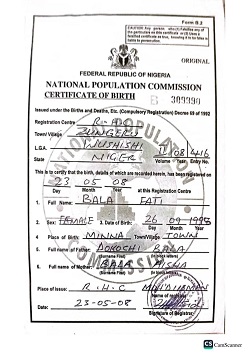 Form B.3
CAUTION: Any person who (1) Falsifies any of the particulars on this certificate or (2) Uses a falsified certificate as true, knowing it to be false is liable to prosecution.
ORIGINAL
FEDERAL REPUBLIC OF NIGERIA
NATIONAL POPULATION COMMISSION
CERTIFICATE OF BIRTH
Issued under the Births and Deaths, Etc. (Compulsory Registration) Decree 69 of 1992
Registration Centre
Town/Village ZUNGERU
L.G.A. WUSHISHI
State NIGER
Volume Year Entry No.
This is to certify that the birth, details of which are recorded herein, has been registered on
23 05 08
Day Month Year at this Registration Centre
1. Full Name: BALA FATI
2. Sex: FEMALE 3. Date of Birth: 26 09
Day Month Year
4. Place of Birth: MINNA Town/Village TOWN
5. Full Name of Father: BALA
6. Full Name of Mother:
Place of Issue: R.H.C
23-05-08
Date
Signature of Registrar
CS CamScanner